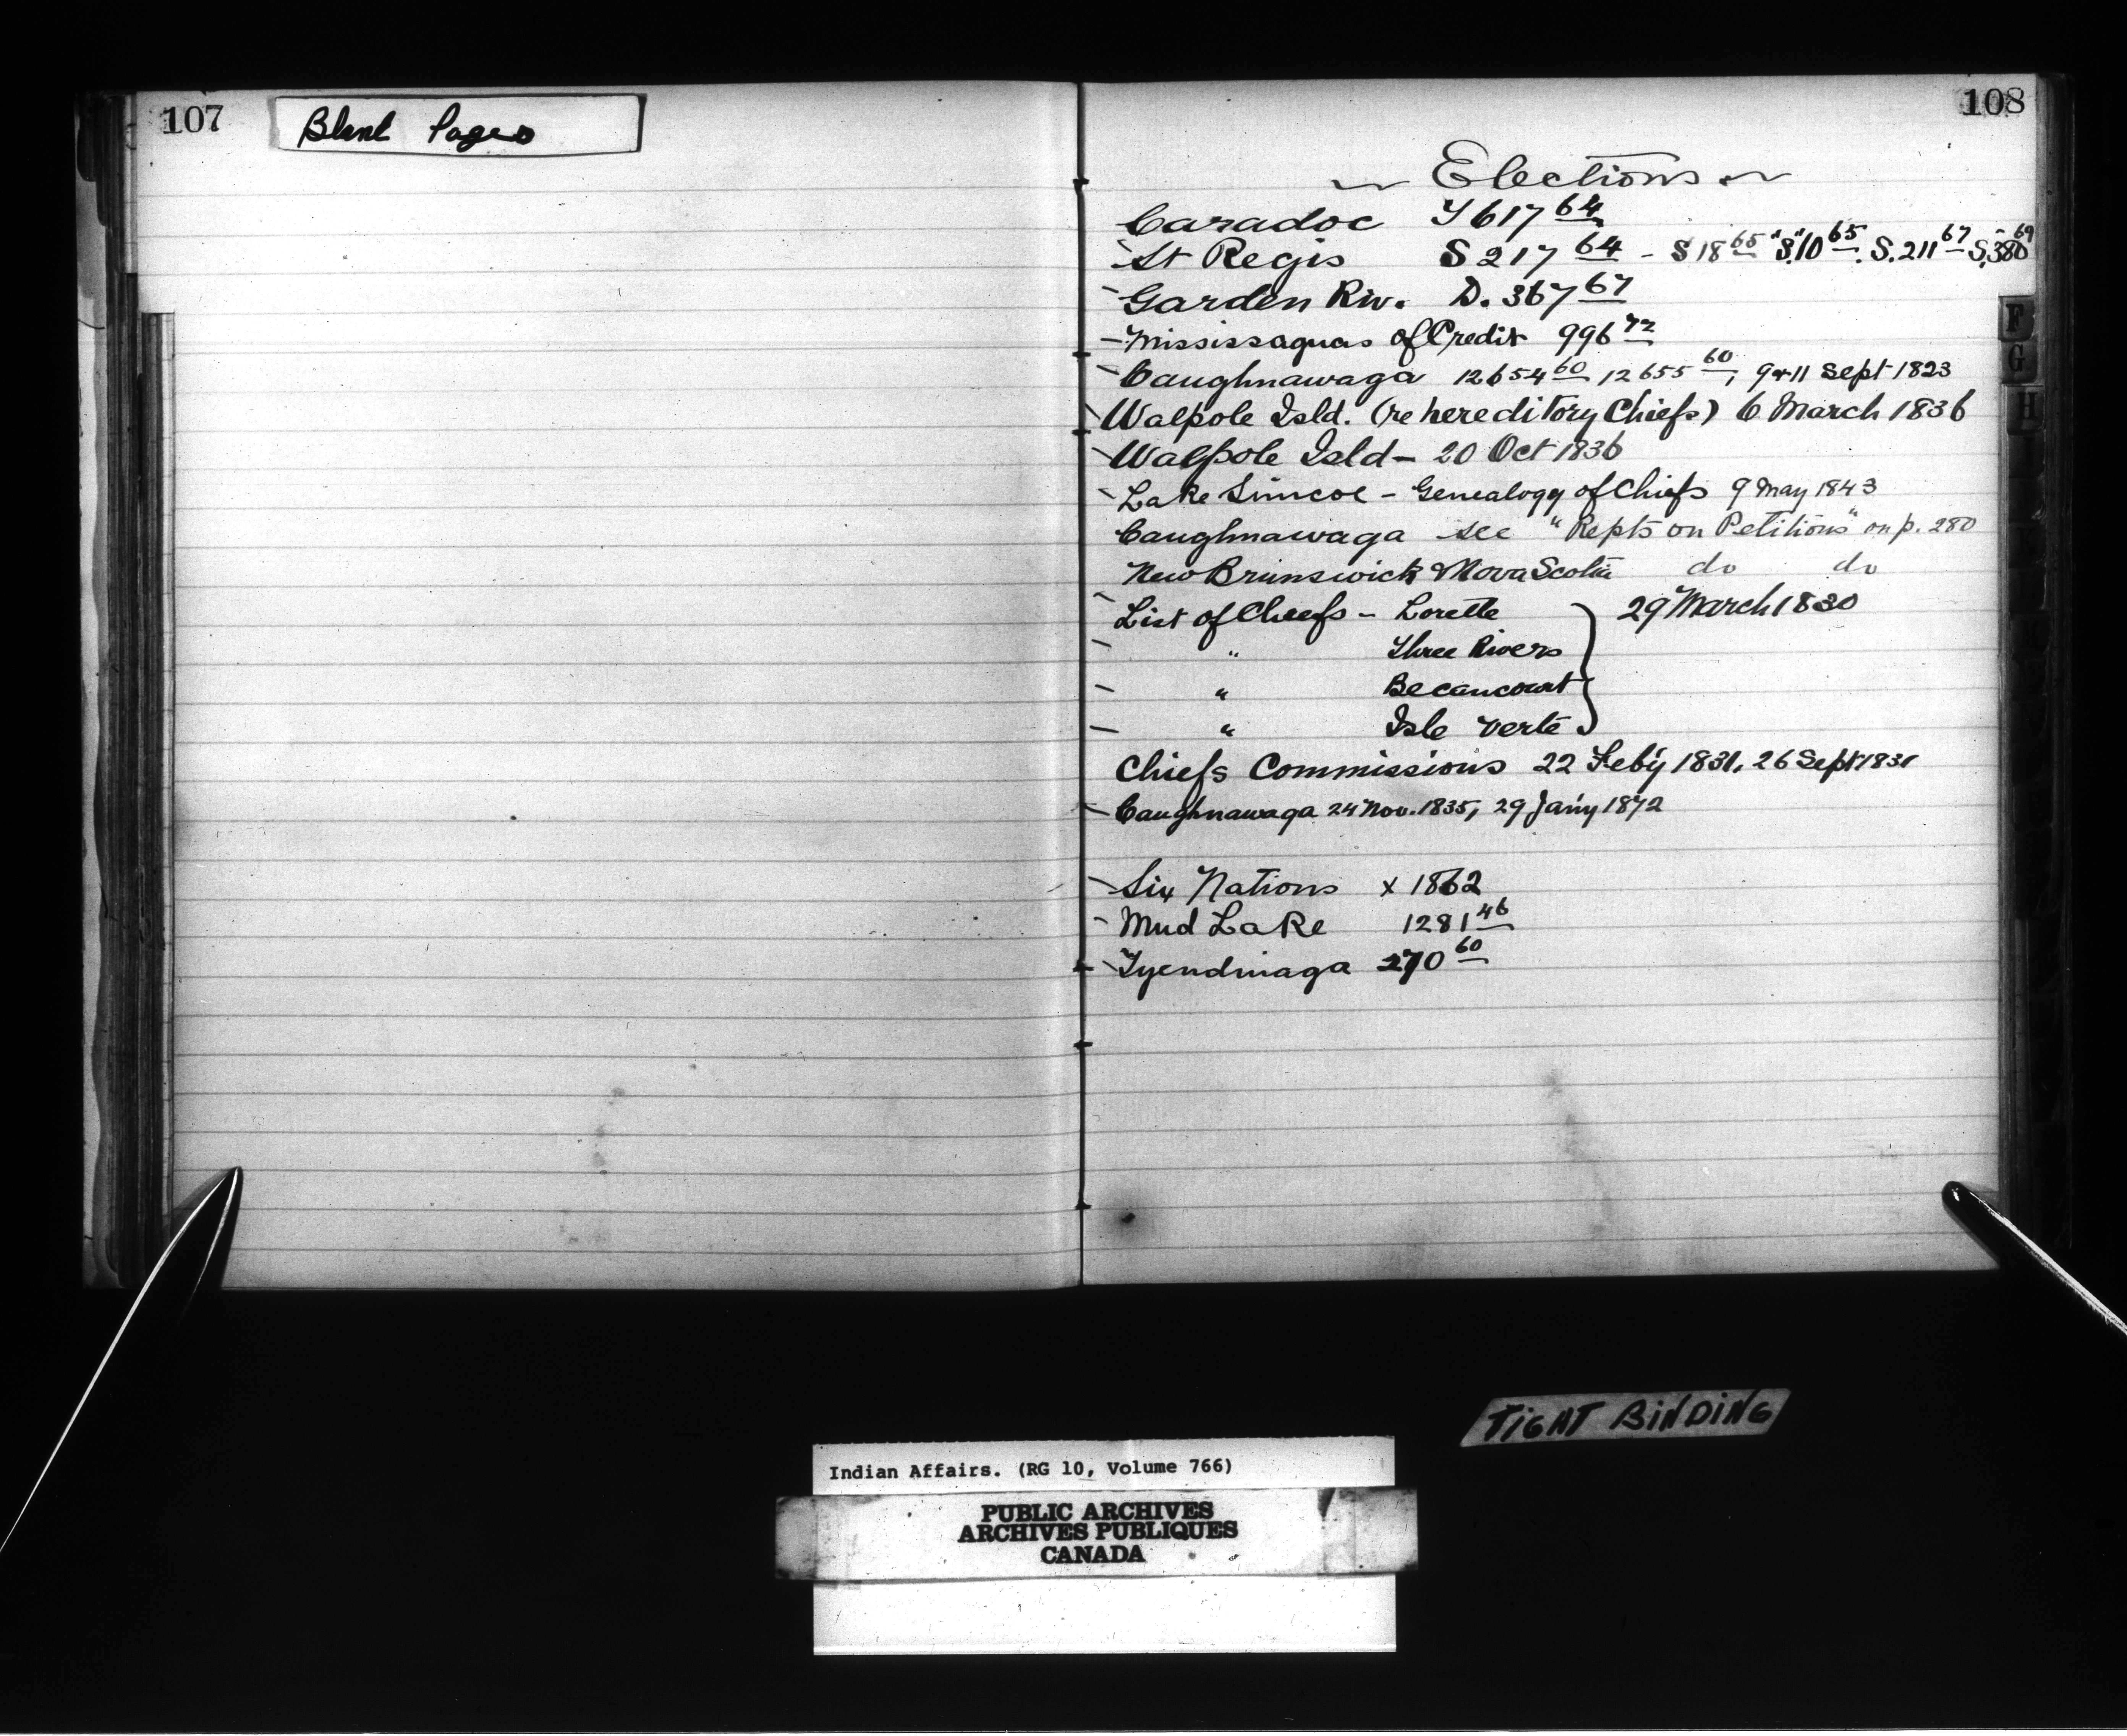 107
Blank Pages
108
Elections
Caradoc T 617 64
St Regis S 217 64 - S 18 65 "S.10 65. S. 211 67 S. 380 69
Garden Riv. D. 367 67
Mississaguas of Credit 996 72
Caughnawaga 12654 60 12655 60, 9 & 11 Sept 1823
Walpole Isld. (re hereditory Chiefs) 6 March 1836
Walpole Isld - 20 Oct 1836
Lake Simcoe - Genealogy of Chiefs 9 May 1843
Caughnawaga see "Repts on Petitions" on p. 280
New Brunswick & Nova Scotia do do
List of Chiefs - Lorette } 29 March 1830
" Three Rivers
" Becancourt
" Isle Verte
Chiefs Commissions 22 Feby 1831, 26 Sept 1831
Caughnawaga 24 Nov. 1835, 29 Jany 1842
Six Nations x 1862
Mud Lake 1281 46
Tyendinaga 270 60
F
G
H
TIGHT BINDING
Indian Affairs. (RG 10, Volume 766)
PUBLIC ARCHIVES
ARCHIVES PUBLIQUES
CANADA